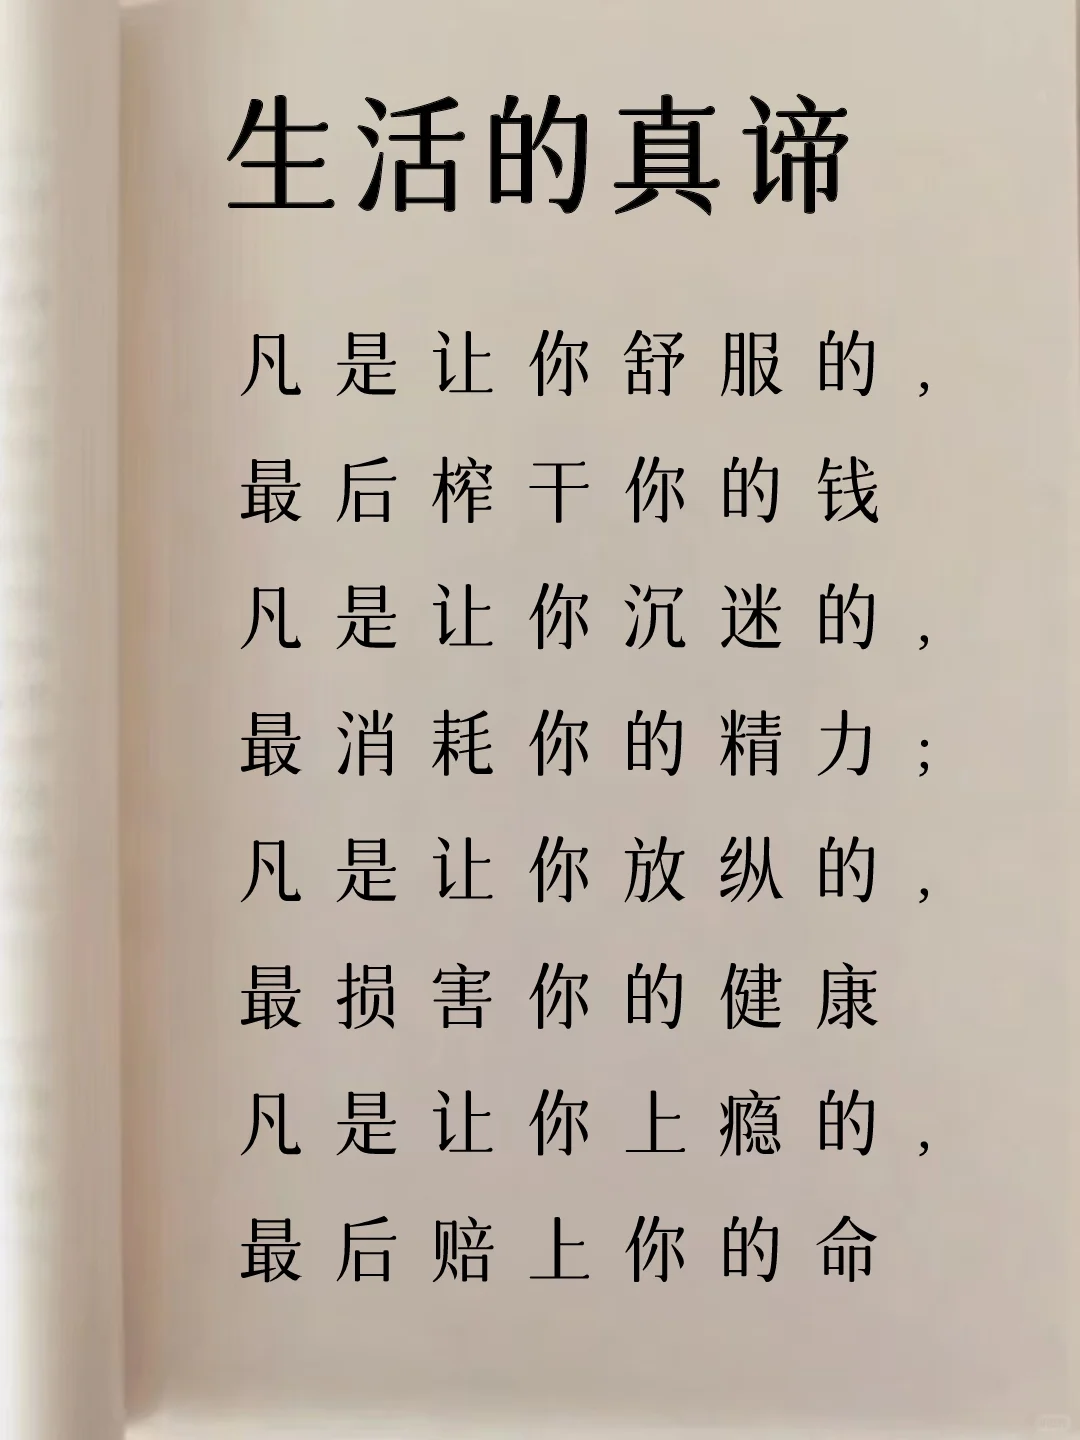 生活的真谛
凡是让你舒服的,
最后榨干你的钱
凡是让你沉迷的,
最消耗你的精力;
凡是让你放纵的,
最损害你的健康
凡是让你上瘾的,
最后赔上你的命